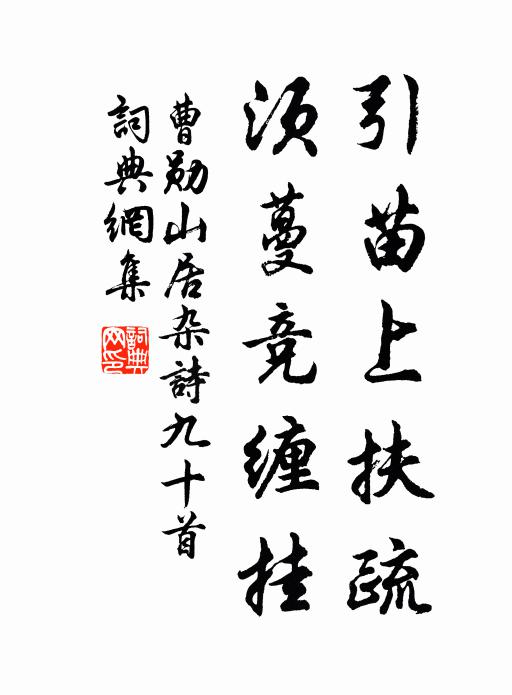 引苗上扶疏
须蔓竞缠挂
曹勋山居杂詩九十首
詞典網集
詞典网印